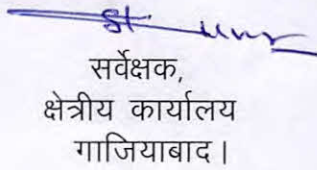 सर्वेक्षक,
क्षेत्रीय कार्यालय
गाजियाबाद।